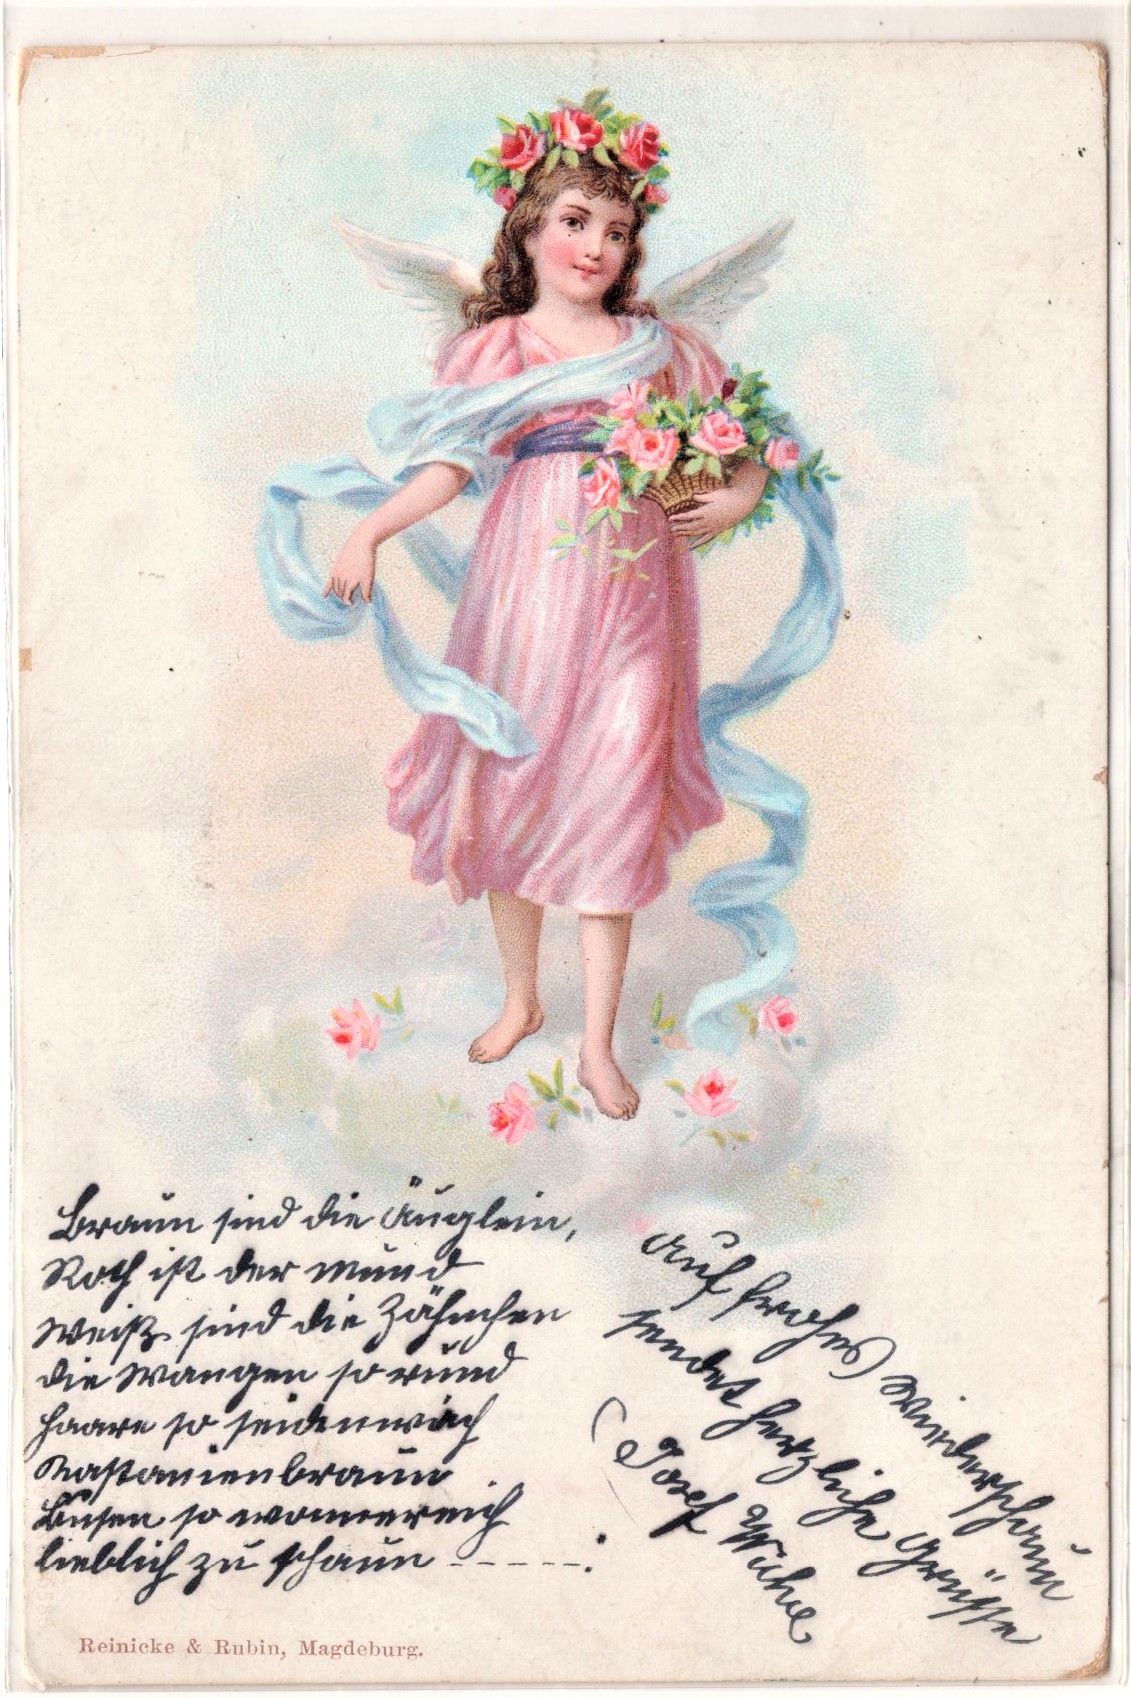 Braun sind die Äuglein,
Roth ist der Mund
Weiß sind die Zähnchen
die Wangen so rund
Haare so seidenweich
Kastanienbraun
Busen so wonnereich
lieblich zu schaun -----.
Auf frohes Wiederschaun
sendet herzliche Grüsse
Josef
Reinicke & Rubin, Magdeburg.